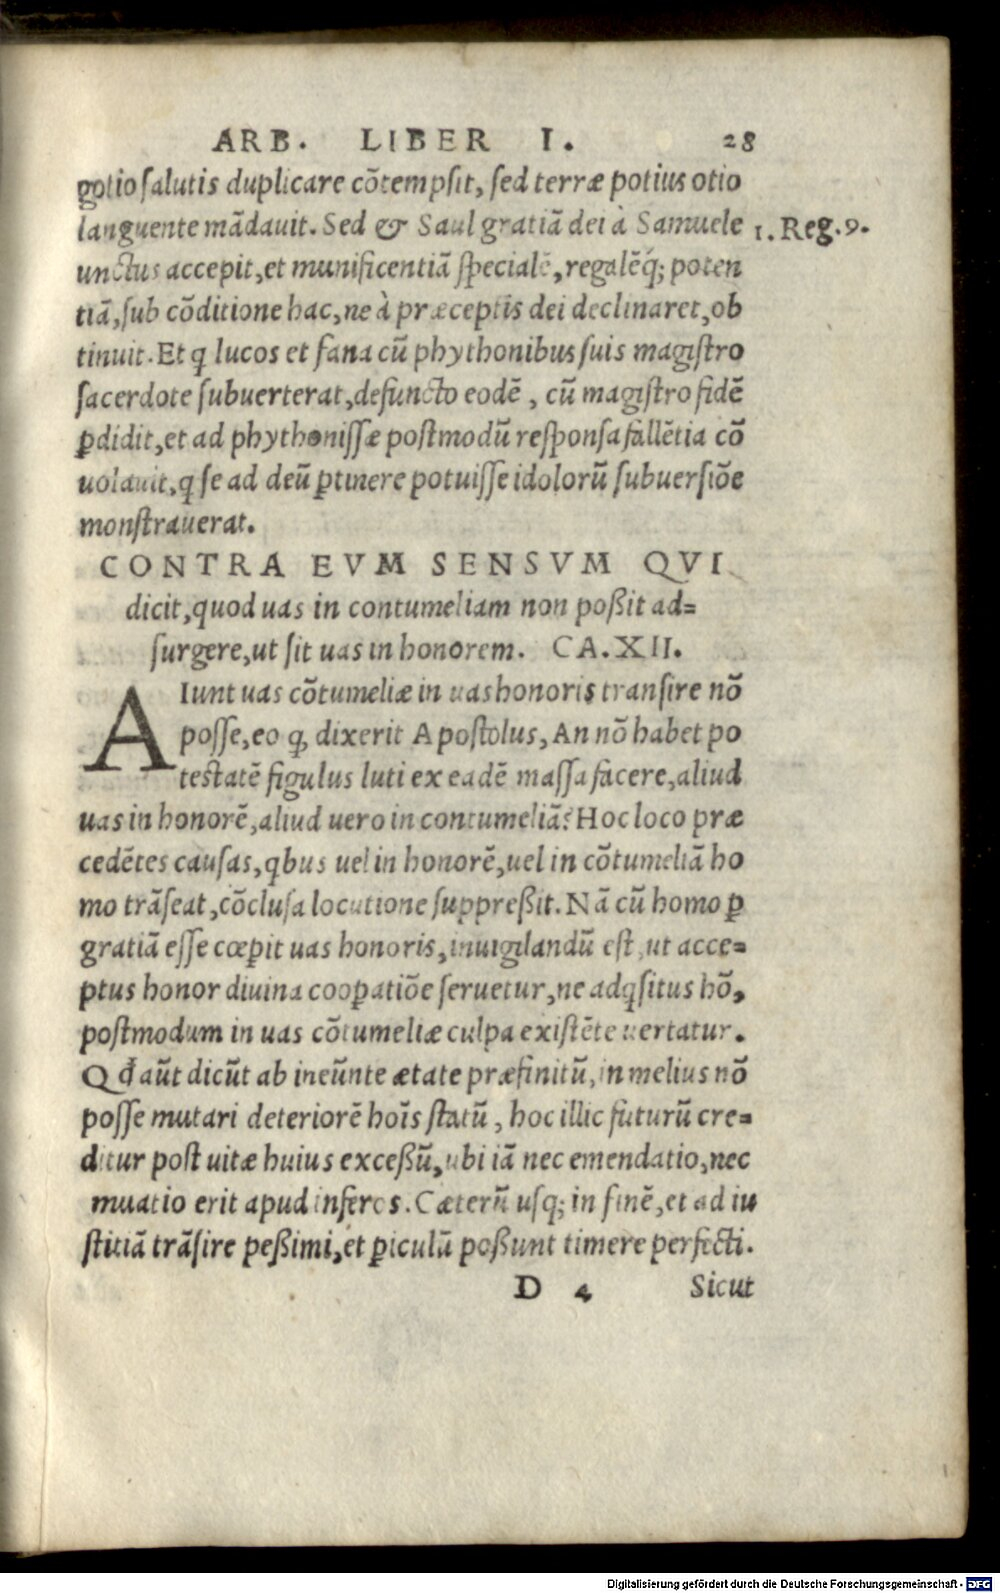 ARB. LIBER I. 28
gotio salutis duplicare cõtempsit, sed terræ potius otio
languente mãdauit. Sed & Saul gratiã dei à Samuele
1. Reg. 9.
unctus accepit, et munificentiã specialẽ, regalẽq́; poten
tiã, sub cõditione hac, ne à præceptis dei declinaret, ob
tinuit. Et q lucos et fana cũ phythonibus suis magistro
sacerdote subuerterat, defuncto eodẽ, cũ magistro fidẽ
ꝑdidit, et ad phythonissæ postmodũ responsa fallẽtia cõ
uolauit, q se ad deũ ꝑtinere potuisse idolorũ subuersiõe
monstrauerat.
CONTRA EVM SENSVM QVI
dicit, quod uas in contumeliam non poßit ad=
surgere, ut sit uas in honorem. CA. XII.
AIunt uas cõtumeliæ in uas honoris transire nõ
posse, eo ꝙ dixerit Apostolus, An nõ habet po
testatẽ figulus luti ex eadẽ massa facere, aliud
uas in honorẽ, aliud uero in contumeliã? Hoc loco præ
cedẽtes causas, qbus uel in honorẽ, uel in cõtumeliã ho
mo trãseat, cõclusa locutione suppreßit. Nã cũ homo ꝑ
gratiã esse cœpit uas honoris, inuigilandũ est, ut acce=
ptus honor diuina cooꝑatiõe seruetur, ne adqsitus hõ,
postmodum in uas cõtumeliæ culpa existẽte uertatur.
Qđ aũt dicũt ab ineũnte ætate præfinitũ, in melius nõ
posse mutari deteriorẽ hoĩs statũ, hoc illic futurũ cre=
ditur post uitæ huius exceßũ, ubi iã nec emendatio, nec
muatio erit apud inferos. Cæterũ usq; in finẽ, et ad iu
stitiã trãsire peßimi, et ꝑiculũ poßunt timere perfecti.
D 4 Sicut
Digitalisierung gefördert durch die Deutsche Forschungsgemeinschaft - DFG